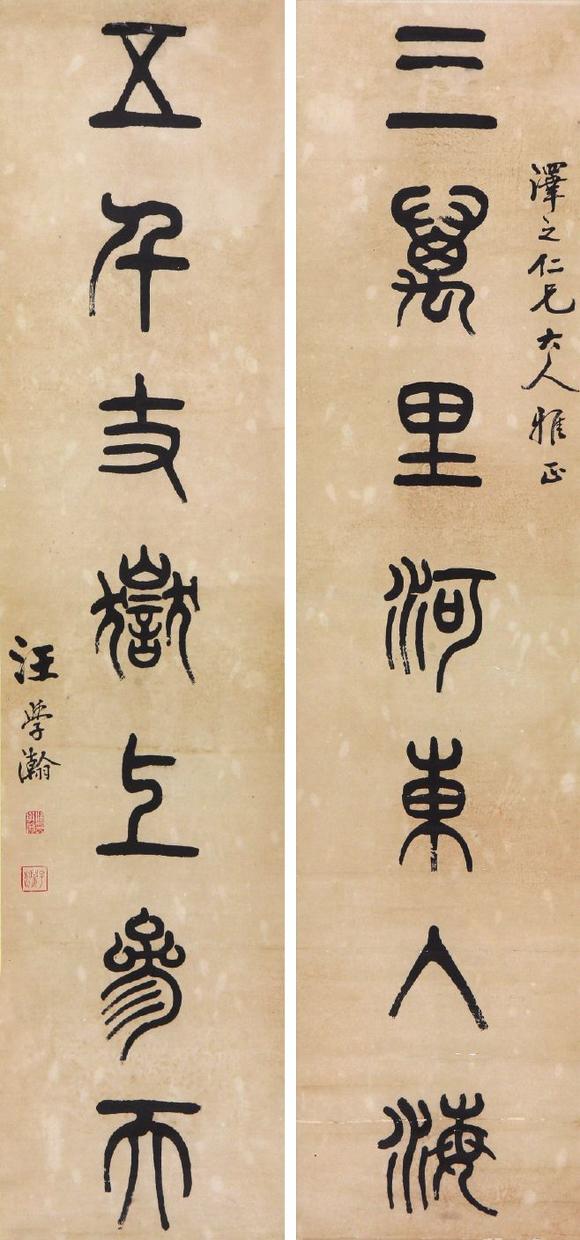 澤之仁兄大人雅正
三萬里河東入海
五千丈嶽上參天
汪學瀚